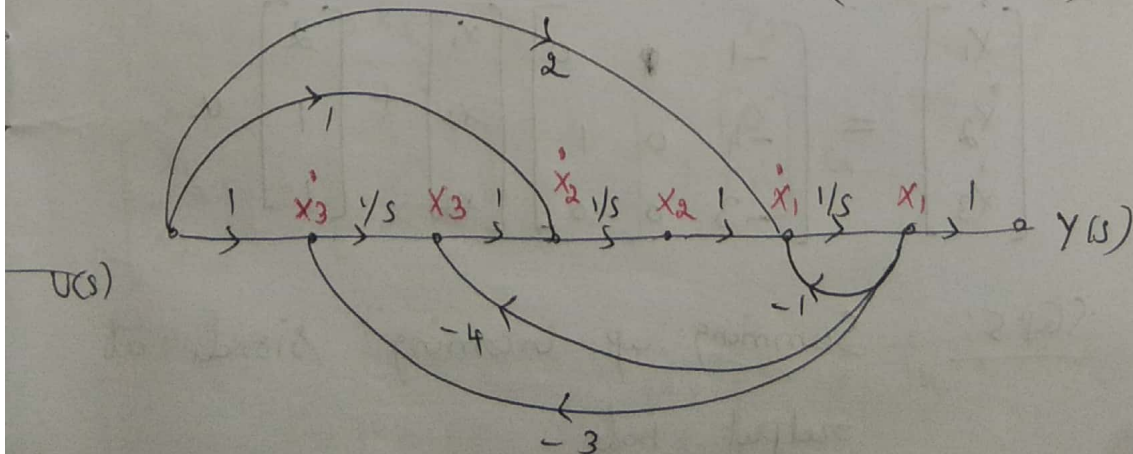 2
1
1 ẋ3 1/s x3 1 ẋ2 1/s x2 1 ẋ1 1/s x1 1 Y(s)
U(s)
-1
-4
-3